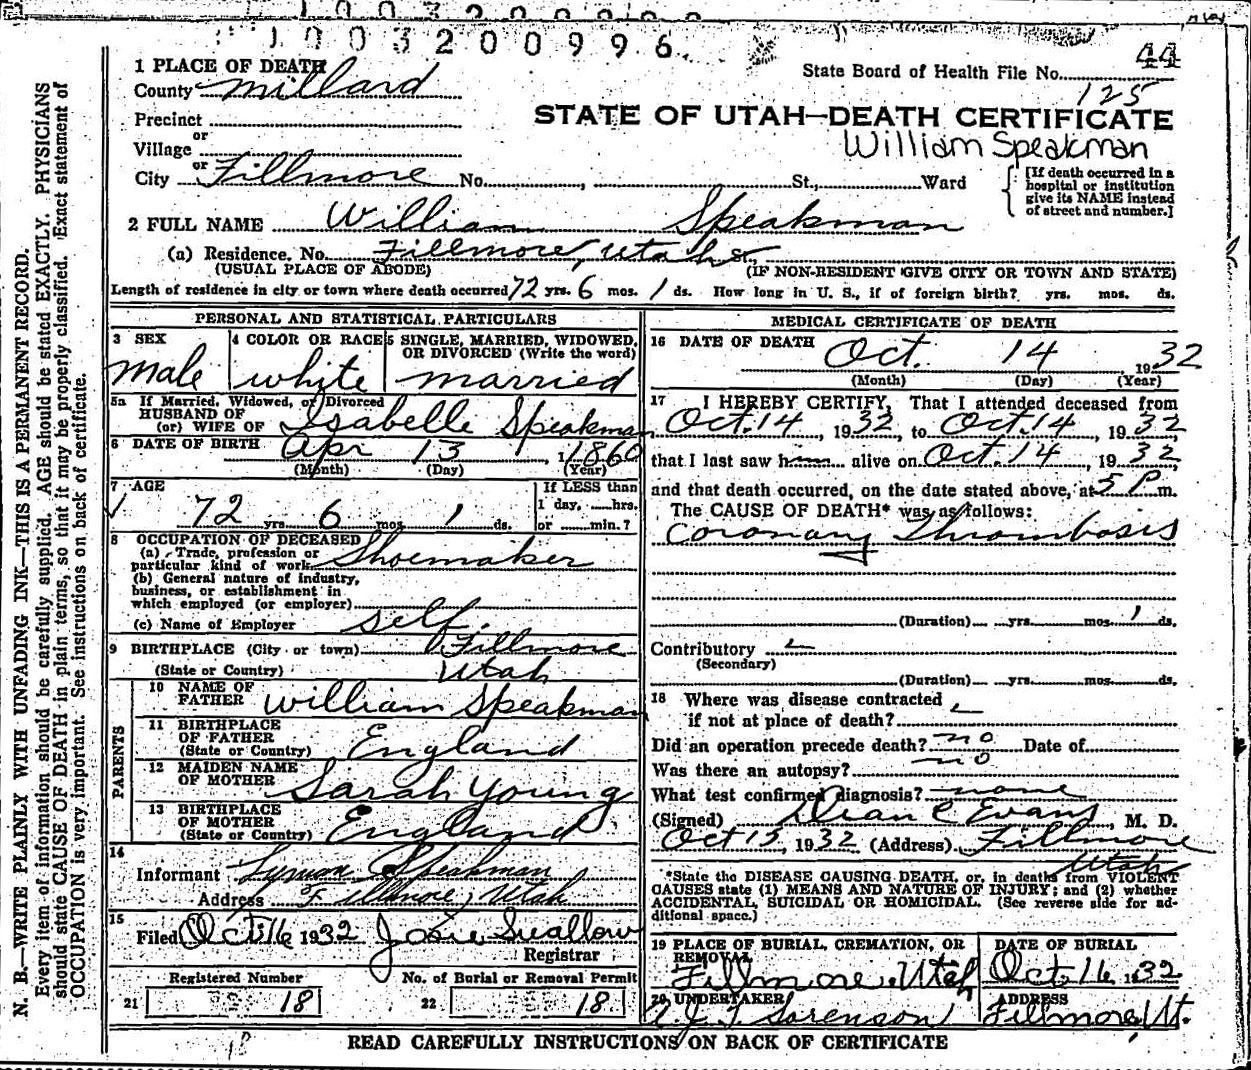 1003200996
44
1 PLACE OF DEATH
State Board of Health File No.
125
County Millard
STATE OF UTAH—DEATH CERTIFICATE
Precinct
or
Village
William Speakman
or
City Fillmore No. , St., Ward
[If death occurred in a
hospital or institution
give its NAME instead
of street and number.]
2 FULL NAME William Speakman
(a) Residence. No. Fillmore, Utah St.,
(USUAL PLACE OF ABODE) (IF NON-RESIDENT GIVE CITY OR TOWN AND STATE)
Length of residence in city or town where death occurred 72 yrs. 6 mos. 1 ds. How long in U. S., if of foreign birth? yrs. mos. ds.
PERSONAL AND STATISTICAL PARTICULARS
3 SEX
male
4 COLOR OR RACE
white
5 SINGLE, MARRIED, WIDOWED,
OR DIVORCED (Write the word)
married
5a If Married, Widowed, or Divorced
HUSBAND OF
(or) WIFE OF Isabelle Speakman
6 DATE OF BIRTH Apr 13, 1860
(Month) (Day) (Year)
7 AGE
72 yrs. 6 mos. 1 ds.
If LESS than
1 day, hrs.
or min.?
8 OCCUPATION OF DECEASED
(a) Trade, profession or
particular kind of work Shoemaker
(b) General nature of industry,
business, or establishment in
which employed (or employer)
(c) Name of Employer self
9 BIRTHPLACE (City or town) Fillmore
(State or Country) Utah
PARENTS
10 NAME OF
FATHER William Speakman
11 BIRTHPLACE
OF FATHER
(State or Country) England
12 MAIDEN NAME
OF MOTHER Sarah Young
13 BIRTHPLACE
OF MOTHER
(State or Country) England
14
Informant Lyman Speakman
Address Fillmore, Utah
15
Filed Oct 16 1932 Josie Swallow
Registrar
Registered Number
21 18
No. of Burial or Removal Permit
22 18
MEDICAL CERTIFICATE OF DEATH
16 DATE OF DEATH Oct. 14, 1932
(Month) (Day) (Year)
17 I HEREBY CERTIFY, That I attended deceased from
Oct. 14, 1932, to Oct. 14, 1932,
that I last saw him alive on Oct. 14, 1932,
and that death occurred, on the date stated above, at 5 P m.
The CAUSE OF DEATH* was as follows:
Coronary Thrombosis
(Duration) yrs. mos. 1 ds.
Contributory
(Secondary)
(Duration) yrs. mos. ds.
18 Where was disease contracted
if not at place of death?
Did an operation precede death? no Date of
Was there an autopsy? no
What test confirmed diagnosis? none
(Signed) Dean C Evans, M. D.
Oct 15, 1932 (Address) Fillmore
Utah
*State the DISEASE CAUSING DEATH, or, in deaths from VIOLENT
CAUSES state (1) MEANS AND NATURE OF INJURY; and (2) whether
ACCIDENTAL, SUICIDAL OR HOMICIDAL. (See reverse side for ad-
ditional space.)
19 PLACE OF BURIAL, CREMATION, OR
REMOVAL
Fillmore, Utah
DATE OF BURIAL
Oct. 16, 1932
20 UNDERTAKER
Sorenson
ADDRESS
Fillmore, Ut.
READ CAREFULLY INSTRUCTIONS ON BACK OF CERTIFICATE
N. B.—WRITE PLAINLY WITH UNFADING INK—THIS IS A PERMANENT RECORD.
Every item of information should be carefully supplied. AGE should be stated EXACTLY. PHYSICIANS
should state CAUSE OF DEATH in plain terms, so that it may be properly classified. Exact statement of
OCCUPATION is very important. See instructions on back of certificate.